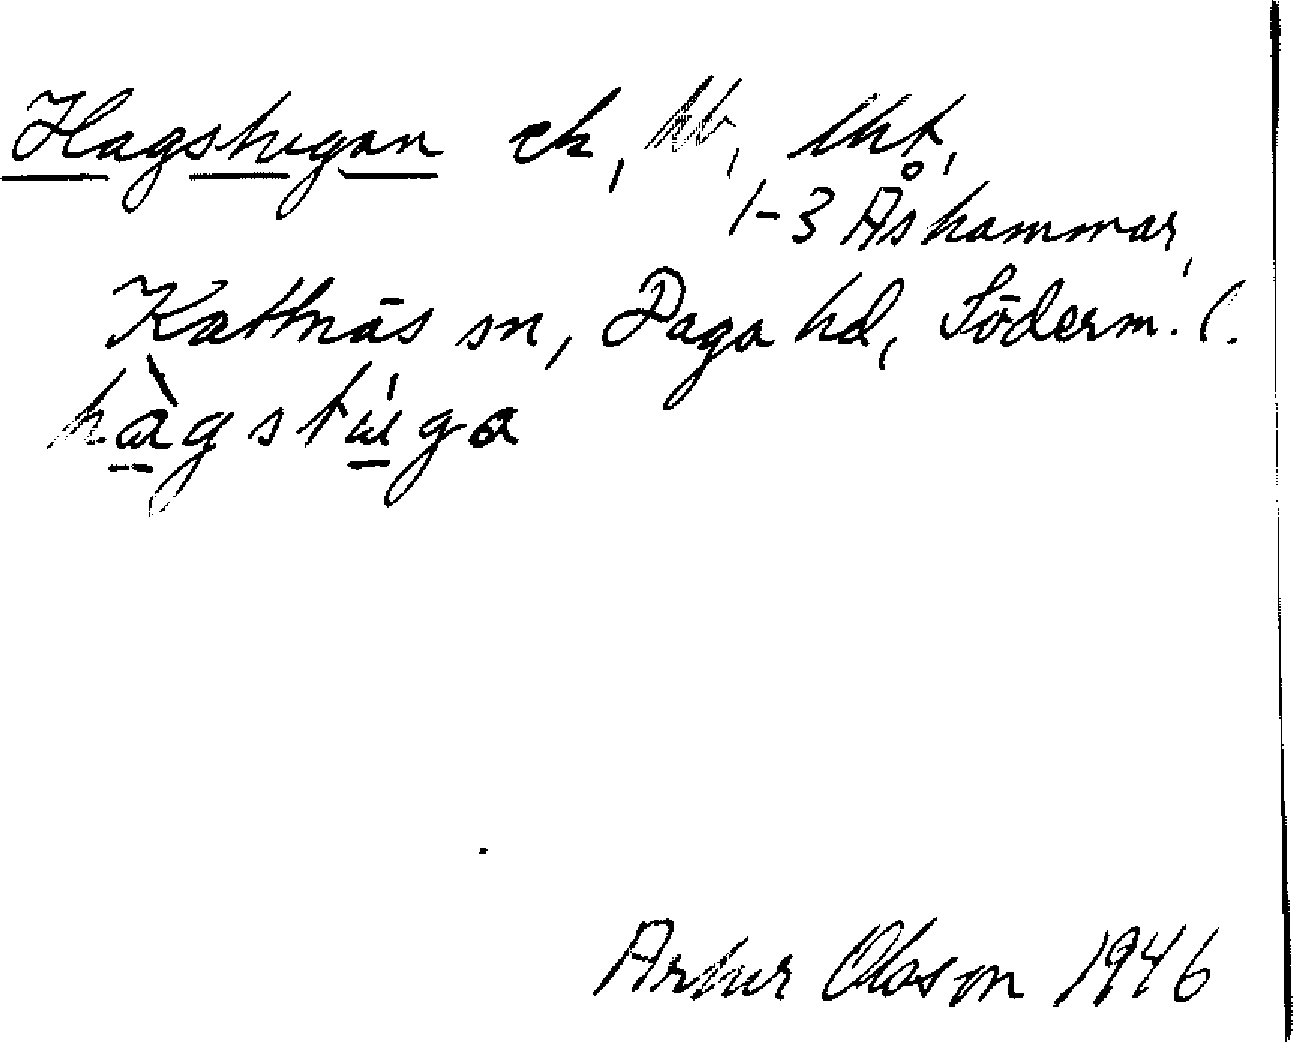 Hagstugan ek, hb, lht,
1-3 Åshammar,
Kattnäs sn, Daga hd, Söderm. l.
hàgstúga
Artur Olsson 1946